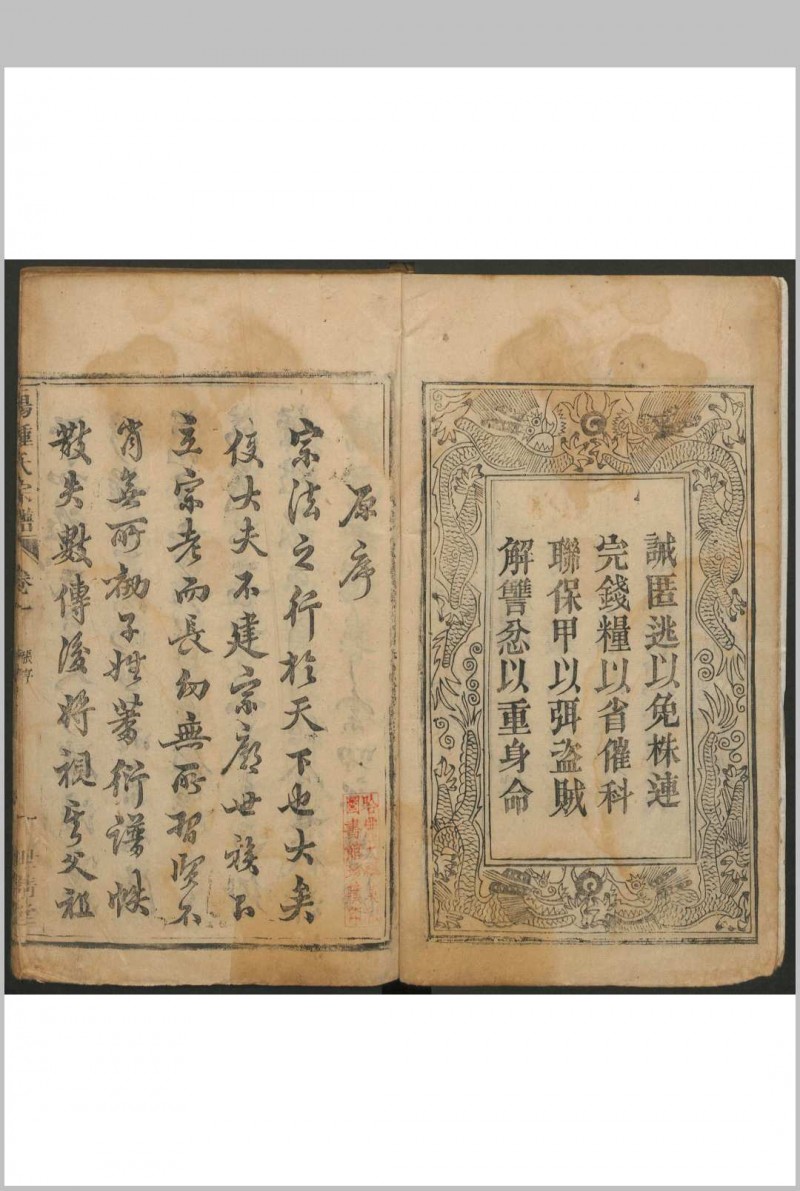 誡匿逃以免株連
完錢糧以省催科
聯保甲以弭盗賊
解讐忿以重身命
原序
宗法之行於天下也大矣
後大夫不建宗廟世族不
立宗老而長幼無所習賢不
肖無所勸子姓蕃衍譜牒
散失數傳後將視其父祖
鍾氏宗譜
卷一
原序
一